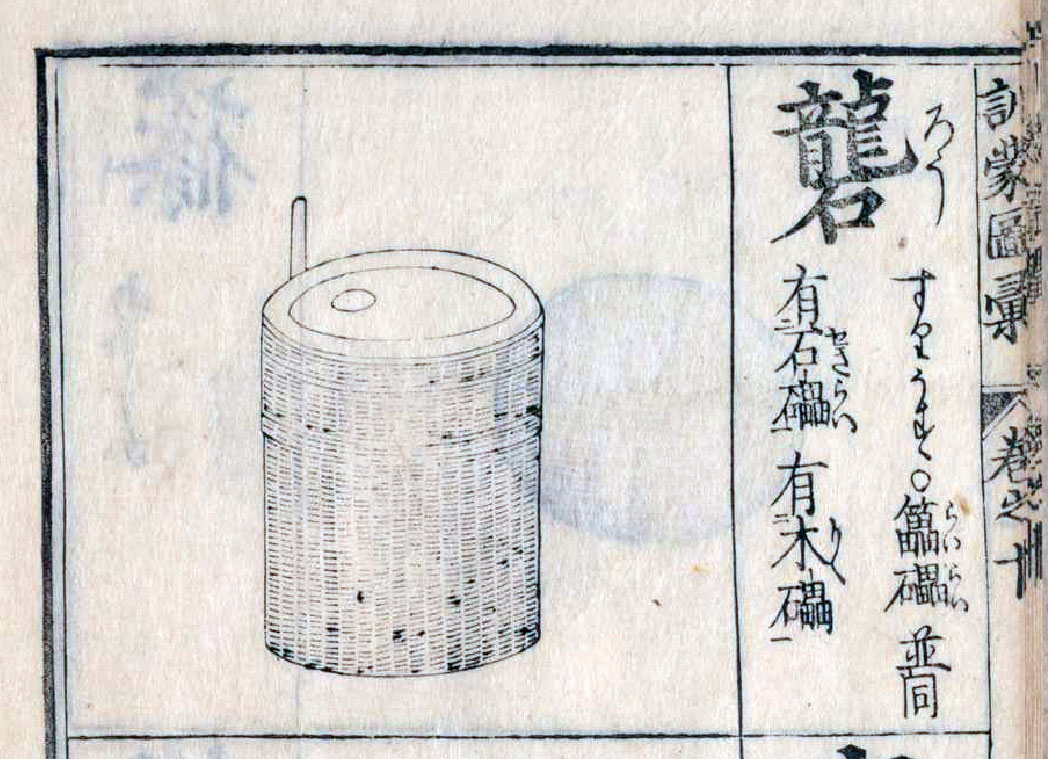 訓蒙圖彙 卷之十
ろう
礱
すりうす〇礧並同
らいらい
有二石礧一有二木礧一
せきらい